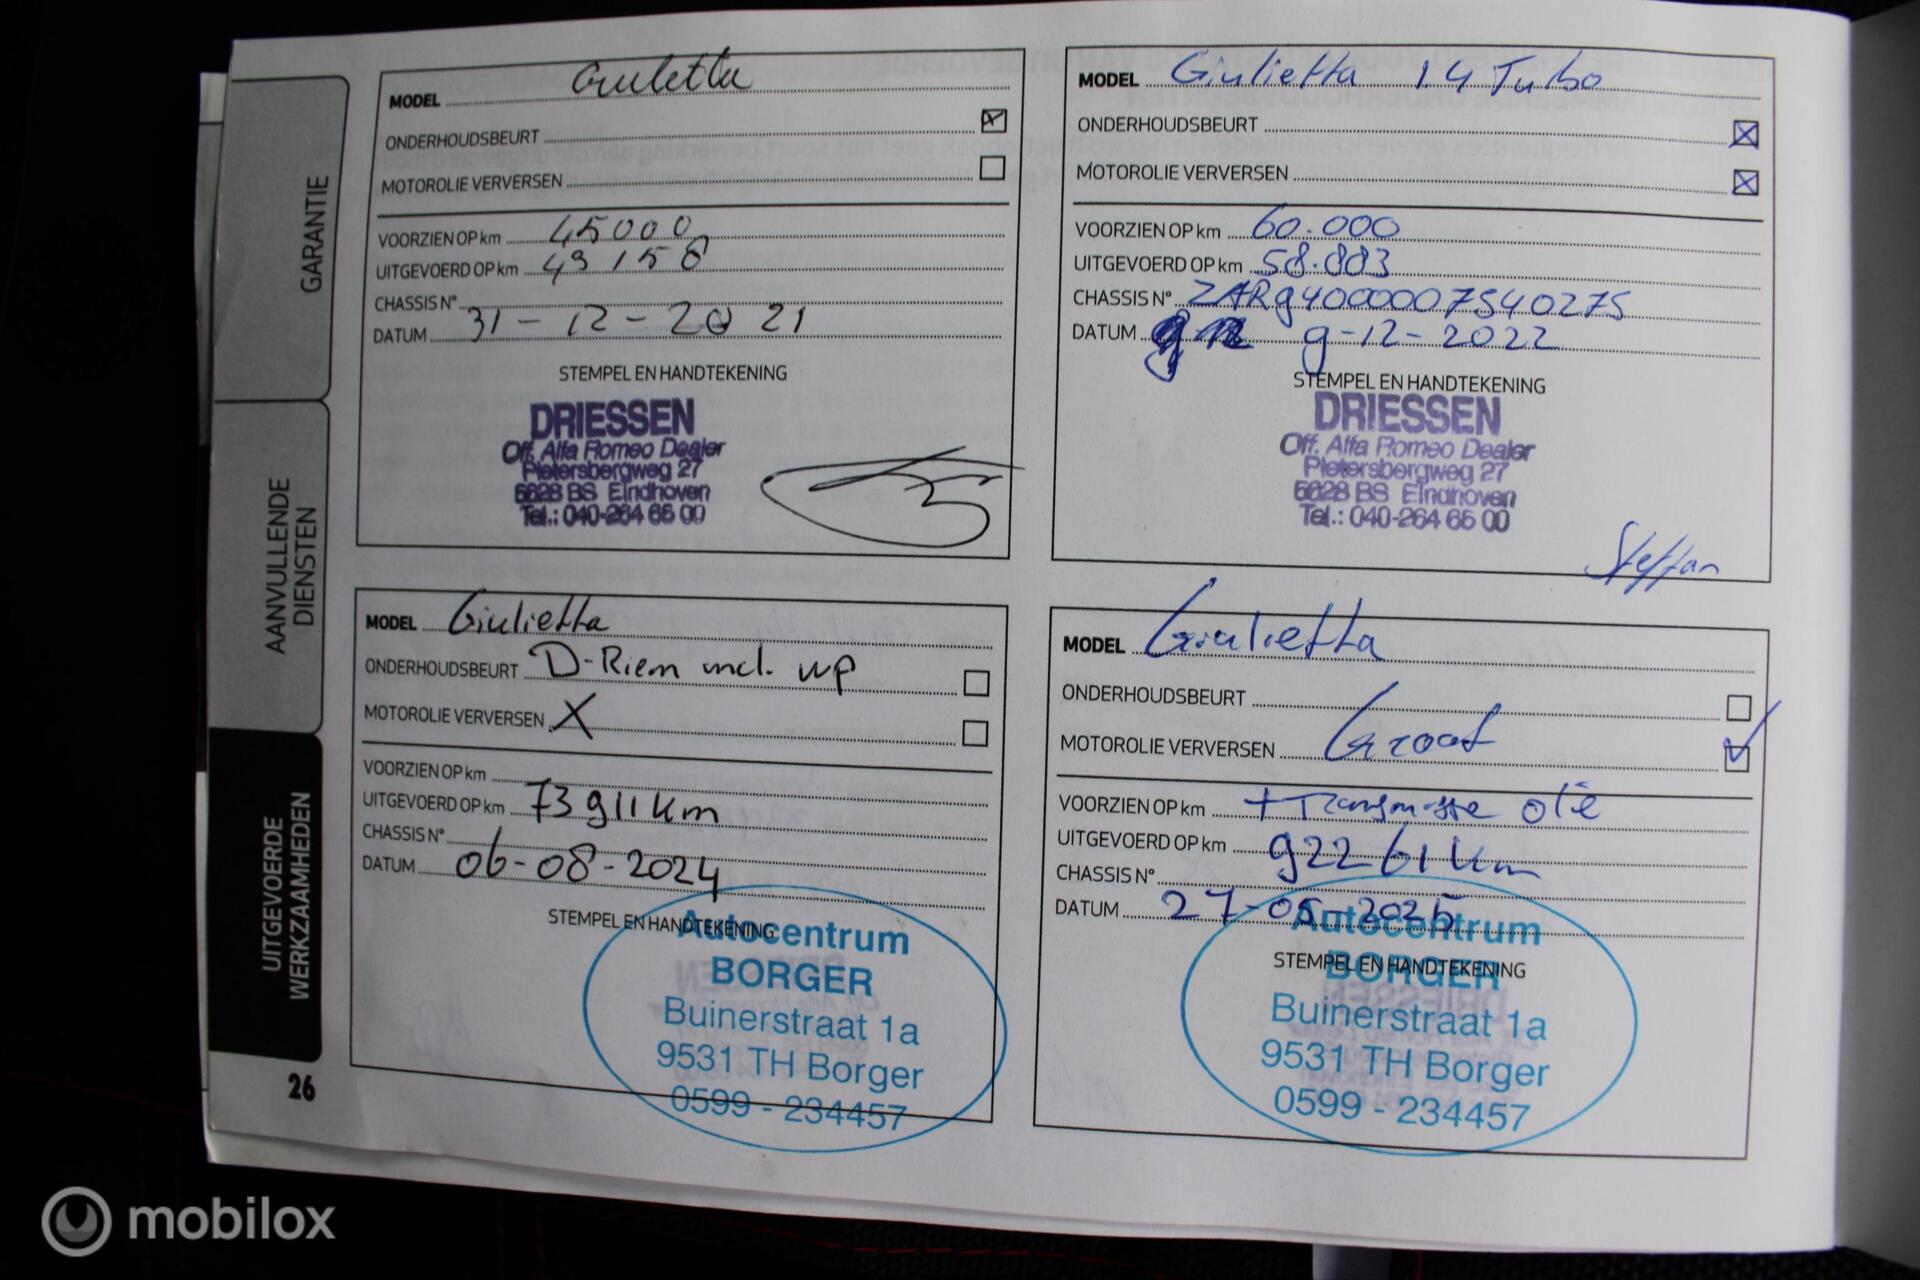 GARANTIE
AANVULLENDE
DIENSTEN
UITGEVOERDE
WERKZAAMHEDEN
26
MODEL Giuletta
ONDERHOUDSBEURT
MOTOROLIE VERVERSEN
VOORZIEN OP km 45000
UITGEVOERD OP km 43158
CHASSIS N°
DATUM 31-12-2021
STEMPEL EN HANDTEKENING
DRIESSEN
Off. Alfa Romeo Dealer
Pietersbergweg 27
5628 BS Eindhoven
Tel.: 040-264 65 00
MODEL Giulietta 1.4 Turbo
ONDERHOUDSBEURT X
MOTOROLIE VERVERSEN X
VOORZIEN OP km 60.000
UITGEVOERD OP km 58.883
CHASSIS N° ZARg4000007540275
DATUM 9-12-2022
STEMPEL EN HANDTEKENING
DRIESSEN
Off. Alfa Romeo Dealer
Pietersbergweg 27
5628 BS Eindhoven
Tel.: 040-264 65 00
Steffan
MODEL Giulietta
ONDERHOUDSBEURT D-Riem incl. wp
MOTOROLIE VERVERSEN X
VOORZIEN OP km
UITGEVOERD OP km 73911 km
CHASSIS N°
DATUM 06-08-2024
STEMPEL EN HANDTEKENING
Autocentrum
BORGER
Buinerstraat 1a
9531 TH Borger
0599 - 234457
MODEL Giulietta
ONDERHOUDSBEURT
MOTOROLIE VERVERSEN Groot
VOORZIEN OP km + Transmissie olie
UITGEVOERD OP km 92261 km
CHASSIS N°
DATUM 27-05-2025
STEMPEL EN HANDTEKENING
Autocentrum
BORGER
Buinerstraat 1a
9531 TH Borger
0599 - 234457
mobilox